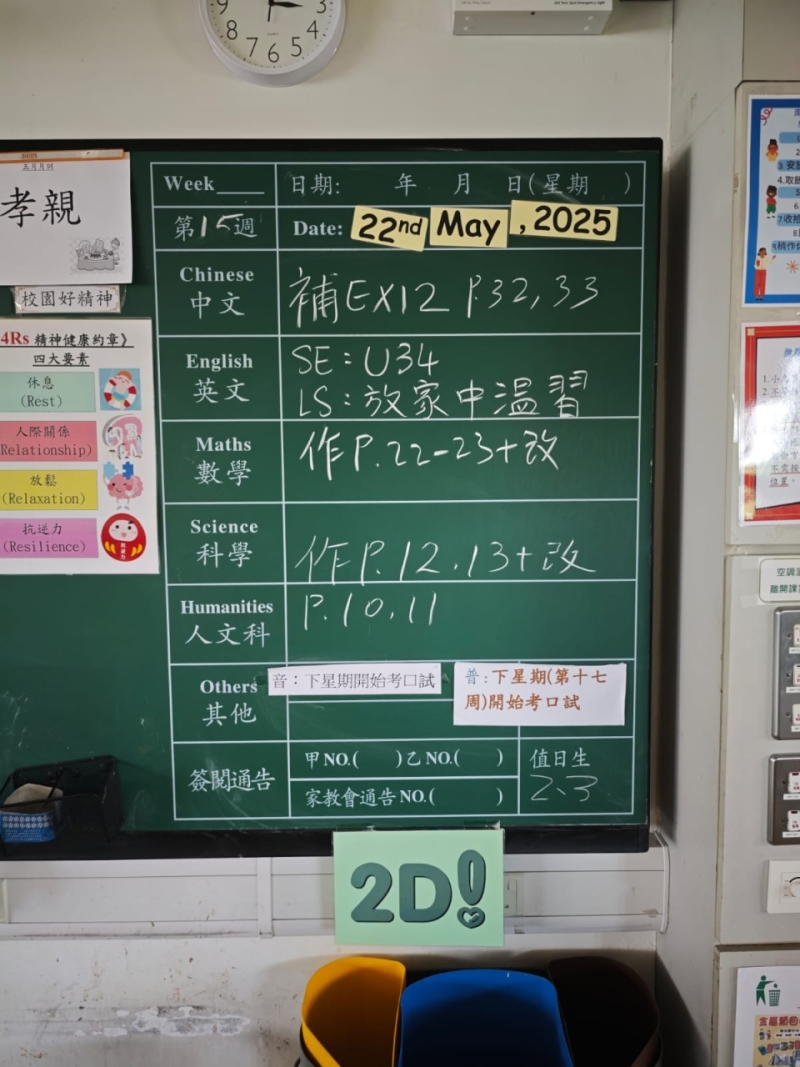 9
3
8
4
7
6
5
五月月訓
孝親
校園好精神
4Rs 精神健康約章》
四大要素
休息
(Rest)
人際關係
Relationship)
放鬆
(Relaxation)
抗逆力
(Resilience)
Week____ 日期: 年 月 日(星期 )
第15週 Date: 22nd May , 2025
Chinese
中文
補EX12 P.32,33
English
英文
SE: U34
LS: 放家中溫習
Maths
數學
作P.22-23+改
Science
科學
作P.12,13+改
Humanities
人文科
P.10,11
Others
其他
音:下星期開始考口試
普:下星期(第十七
周)開始考口試
簽閱通告
甲NO.( )乙NO.( )
家教會通告NO.( )
值日生
2、3
2D!
空調
離開課